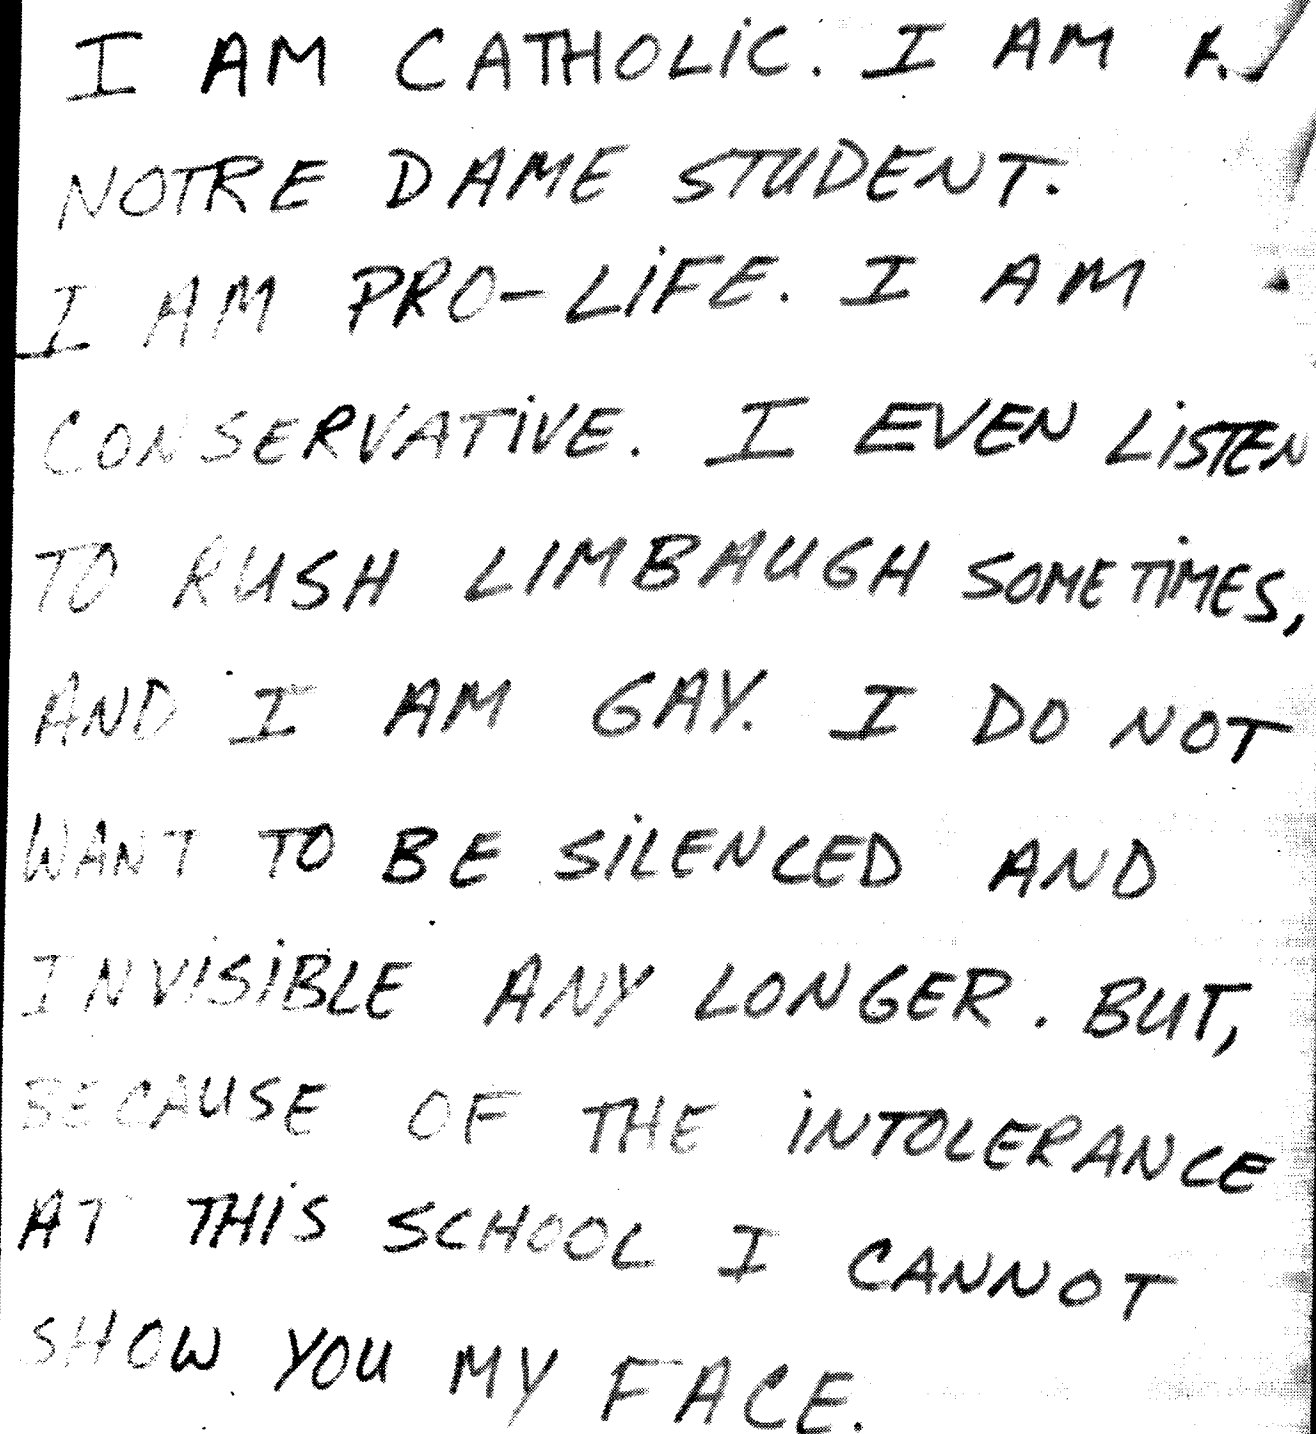 I AM CATHOLIC. I AM A
NOTRE DAME STUDENT.
I AM PRO-LIFE. I AM
CONSERVATIVE. I EVEN LISTEN
TO RUSH LIMBAUGH SOMETIMES,
AND I AM GAY. I DO NOT
WANT TO BE SILENCED AND
INVISIBLE ANY LONGER. BUT,
BECAUSE OF THE INTOLERANCE
AT THIS SCHOOL I CANNOT
SHOW YOU MY FACE.